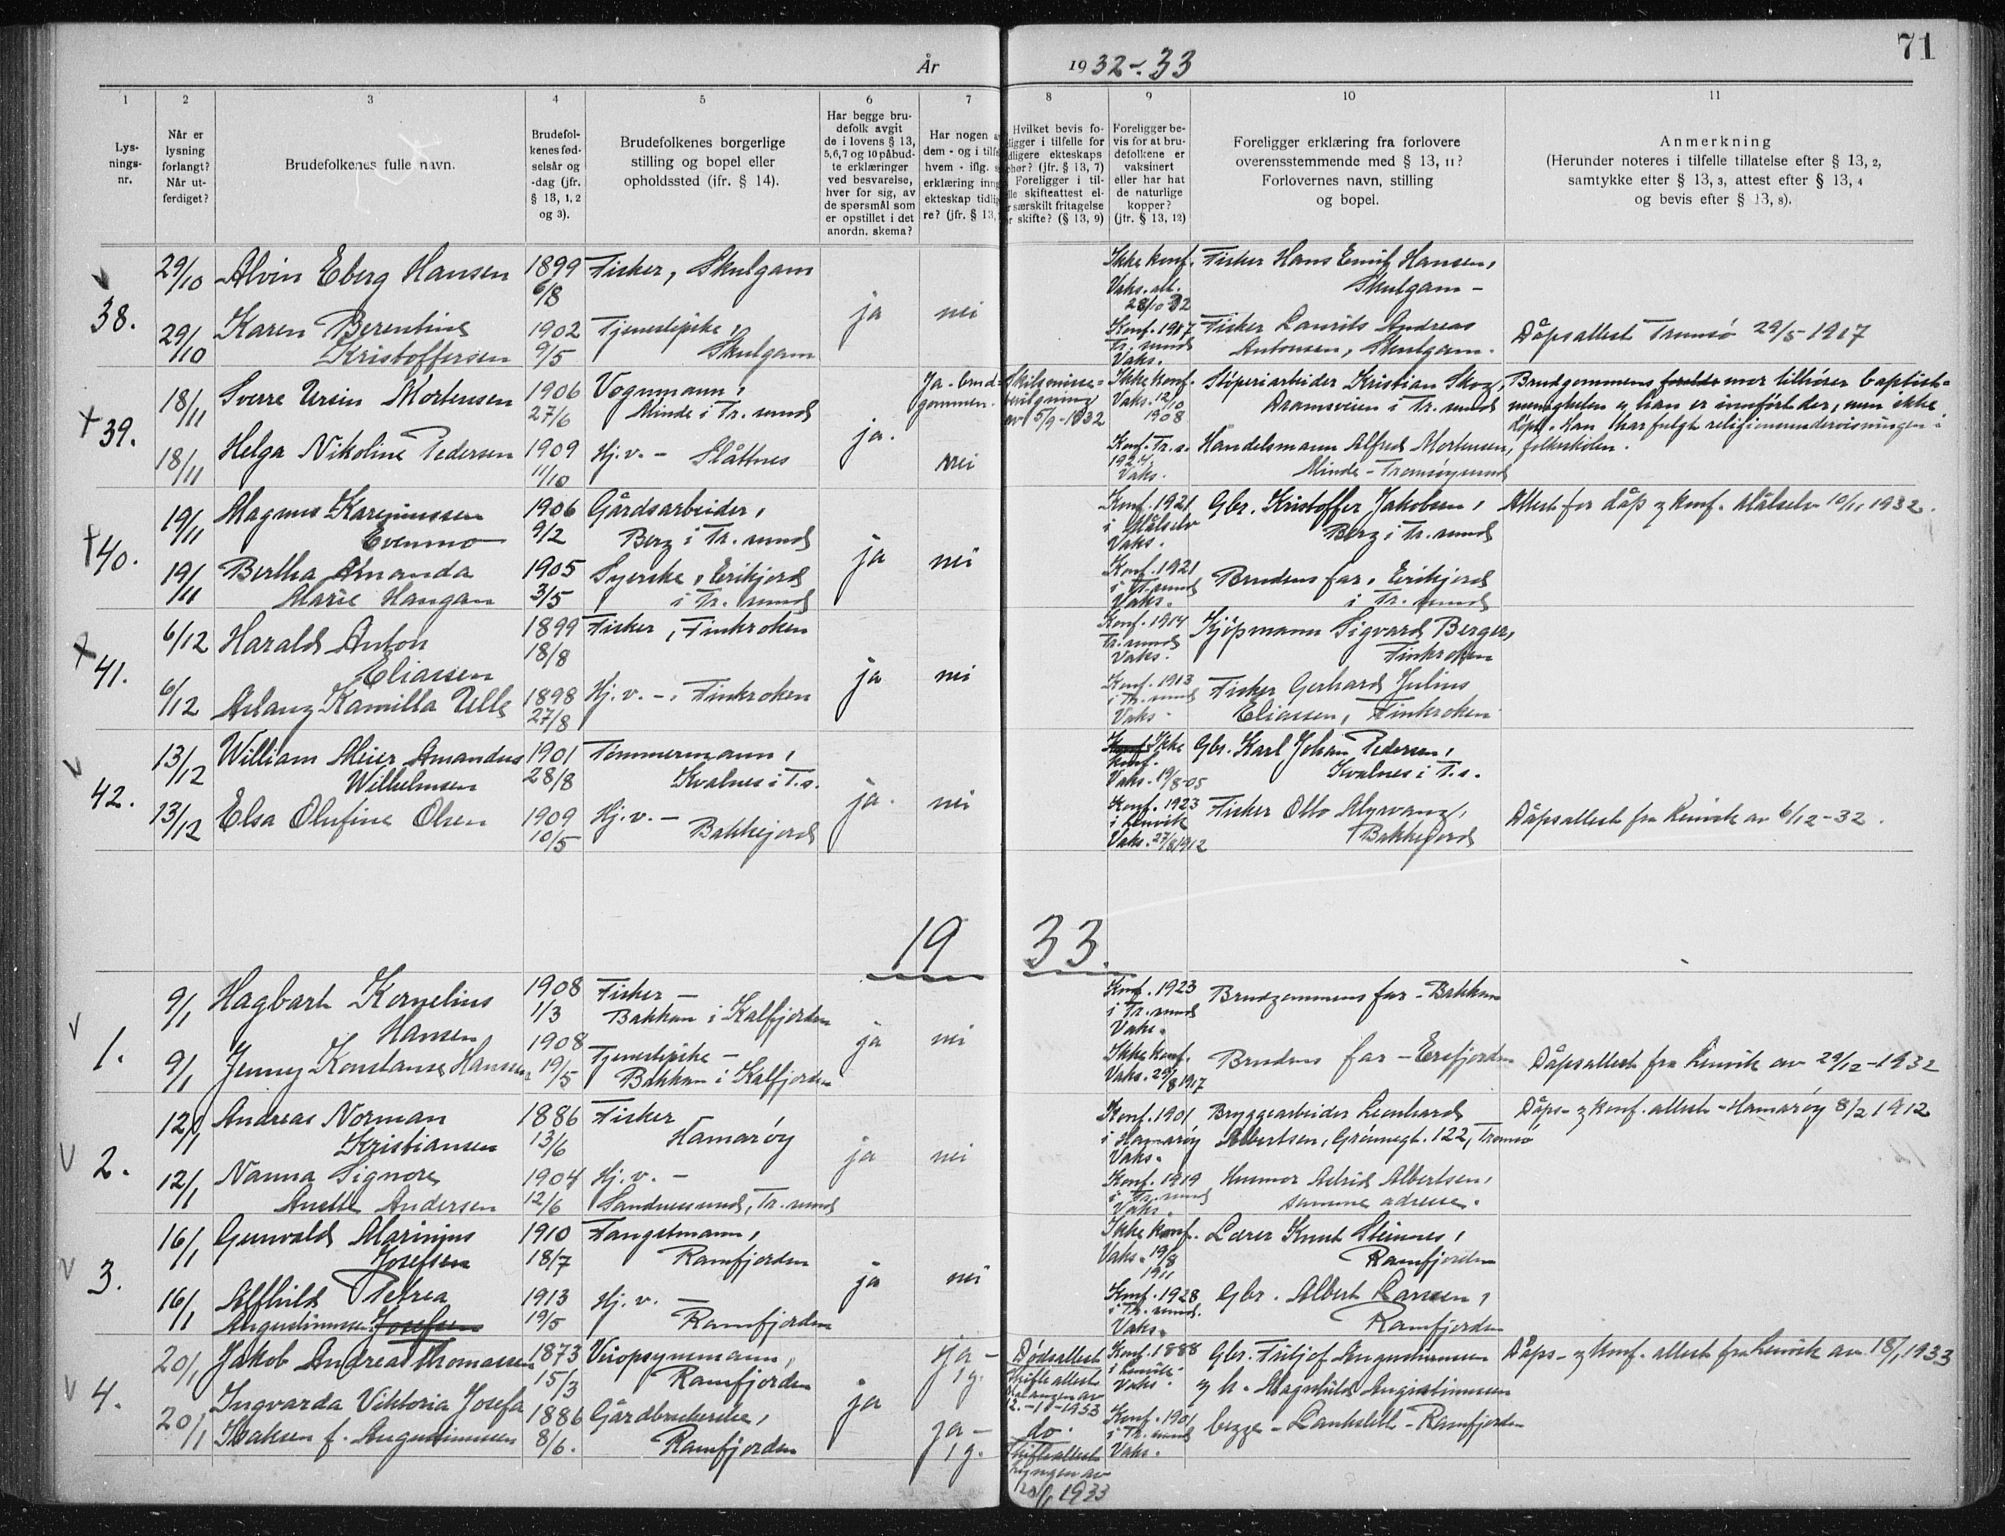 71
År 1932-33
1 2 3 4 5 6 7 8 9 10 11
Lys-
nings-
nr.
Når er
lysning
forlangt?
Når ut-
ferdiget?
Brudefolkenes fulle navn.
Brudefol-
kenes fød-
selsår og
-dag (jfr.
§ 13, 1, 2
og 3).
Brudefolkenes borgerlige
stilling og bopel eller
opholdssted (jfr. § 14).
Har begge bru-
defolk avgit
de i lovens § 13,
5,6,7 og 10 påbud-
te erklæringer
ved besvarelse,
hver for sig, av
de spørsmål som
er opstillet i det
anordn. skema?
Har nogen a
dem - og i tilf
hvem - iflg. s
erklæring inng
ekteskap tidlig
re? (jfr. § 13,
Hvilket bevis fo-
ligger i tilfelle for
dligere ekteskaps
phør? (jfr. § 13, 7)
Foreligger i til-
lle skifteattest el-
r særskilt fritagelse
r skifte? (§ 13, 9)
Foreligger be-
vis for at bru-
defolkene er
vaksinert
eller har hat
de naturlige
kopper?
(jfr. § 13, 12)
Foreligger erklæring fra forlovere
overensstemmende med § 13, 11?
Forlovernes navn, stilling
og bopel.
Anmerkning
(Herunder noteres i tilfelle tillatelse efter § 13, 2,
samtykke efter § 13, 3, attest efter § 13, 4
og bevis efter § 13, 8).
38.
29/10 Alvin Eberg Hansen 1899 Fisker, Skulgam
6/8
ja nei
Ikke konf.
Vaks. att.
28/10 32
Fisker Hans Emil Hansen,
Skulgam -
29/10 Karen Berentine
Kristoffersen
1902
9/5
Tjenestepike,
Skulgam
Konf. 1917
Tr. sund
Vaks.
Fisker Laurits Andreas
Antonsen, Skulgam.
Dåpsattest Tromsø 29/5 1917
39.
18/11 Sverre Ursin Mortensen 1906
27/6
Vognmann,
Minde i Tr. sund
ja.
Ja - brud-
gommen.
Skilsmisse-
bevilgning
av 5/9-1932
Ikke konf.
Vaks. 12/10
1908
Støperiarbeider Kristian Skog,
Dramsveien i Tr. sund
Brudgommens mor tilhører baptist-
menigheten og han er innført der, men ikke
døpt. Han har fulgt religionsundervisningen i
folkeskolen.
18/11 Helga Nikoline Pedersen 1909
11/10
Hj. v. - Slåttnes
nei
Konf. Tr. s.
1924
Vaks.
Handelsmann Alfred Mortensen,
Minde - Tromsøysund
40.
19/11 Magnus Kareniussen
Evenmo
1906
9/2
Gårdsarbeider,
Berg i Tr. sund
ja nei
Konf. 1921
i Målselv
Vaks.
Gbr. Kristoffer Jakobsen,
Berg i Tr. sund
Attest for dåp og konf. Målselv 10/11 1932.
19/11 Bertha Amanda
Marie Haugan
1905
3/5
Syerske, Erikjord
i Tr. sund
Konf. 1921
i Tr. sund
Vaks.
Brudens far, Erikjord
i Tr. sund
41.
6/12 Harald Anton
Eliassen
1899
18/8
Fisker, Finkroken
ja nei
Konf. 1914
Tr. sund
Vaks.
Kjøpmann Sigvard Berger,
Finkroken
6/12 Aslaug Kamilla Ulls 1898
27/8
Hj. v. -. Finkroken
Konf. 1913
i Tr. sund
Vaks.
Fisker Gerhard Julius
Eliassen, Finkroken
42.
13/12 William Meier Amandus
Wilhelmsen
1901
28/8
Tømmermann,
Kvalnes i T.s.
ja. nei
Konf. Ikke
konf.
Vaks. 19/8-05
Gbr. Karl Johan Pedersen,
Kvalnes i T.s.
13/12 Elsa Olufine Olsen 1909
10/5
Hj. v. -
Bakkejord
Konf. 1923
i Lenvik
Vaks. 27/8 1912
Fisker Otto Myrvang,
Bakkejord
Dåpsattest fra Lenvik av 6/12-32.
1933.
1.
9/1 Hagbart Kornelius
Hansen
1908
1/3
Fisker -
Bakkan i Kalfjorden
ja nei
Konf. 1923
i Tr. sund
Vaks.
Brudgommens far - Bakkan
9/1 Jenny Konstanse Hansen 1908
19/5
Tjenestepike -
Bakkan i Kalfjorden
Ikke konf.
Vaks. 29/8 1917
Brudens far - Ersfjorden
Dåpsattest fra Lenvik av 29/12-1932
2.
12/1 Andreas Norman
Kristiansen
1886
13/6
Fisker
Hamarøy
ja nei
Konf. 1901
i Hamarøy
Vaks.
Bryggearbeider Leonhard
Albertsen, Grønnegt. 122, Tromsø
Dåps- og konf. attest - Hamarøy 8/2 1912
12/1 Nanna Signore
Anette Andersen
1904
12/6
Hj. v. -
Sandnessund, Tr. sund
Konf. 1919
i Tr. sund
Vaks.
Husmor Astrid Albertsen,
samme adresse.
3.
16/1 Gunvald Marinius
Josefsen
1910
18/7
Fangstmann,
Ramfjorden
ja nei
Ikke konf.
Vaks. 19/8
1911
Lærer Knut Steinnes,
Ramfjorden
16/1 Alfhild Petrea
Augustinussen Josefsen
1913
19/5
Hj. v. -
Ramfjorden
Konf. 1928
i Tr. sund.
Vaks.
Gbr. Albert Larssen,
Ramfjorden
4.
20/1 Jakob Andreas Thomassen 1873
15/3
Veiopsynsmann,
Ramfjorden
ja
ja -
1 g.
Dødsattest
Skifteattest
Malangen av
Konf. 1888
i Lenvik
Vaks.
Gbr. Fritjof Augustinussen
og h. Magnhild Augustinussen
Dåps- og konf. attest fra Lenvik av 18/1 1933
20/1 Ingvarda Viktoria Josefa
Isaksen f. Augustinussen
1886
8/6.
Gårdbrukerske,
Ramfjorden
ja -
1 g.
do.
Skifteattest
Lyngen av
20/1 1933
Konf. 1901
i Tr. sund
Vaks.
begge - Lankslett - Ramfjorden